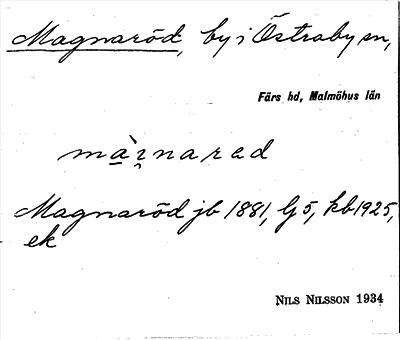 Magnaröd, by i Östraby sn,
Färs hd, Malmöhus län
Magnaröd jb 1881, G 5, kb 1925,
ek
NILS NILSSON 1934